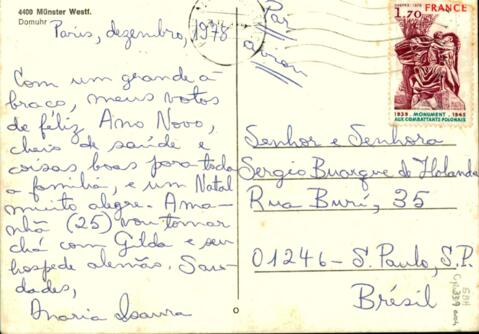 4400 Münster Westf.
Domuhr
Paris, dezembro, 1978
Com um grande a-
braço, meus votos
de féliz Ano Novo,
cheio de saúde e
coisas boas para toda
a família, e um Natal
muito alegre. Ama-
nhã (25) vou tomar
chá com Gilda e seu
hospede alemão. Sau-
dades,
Maria Isaura
Par
avion
1,70 FRANCE
1939 MONUMENT 1945
AUX COMBATTANTS POLONAIS
Senhor e Senhora
Sergio Buarque de Holanda
Rua Buri, 35
01246 - S. Paulo, S.P.
Brésil
SBH